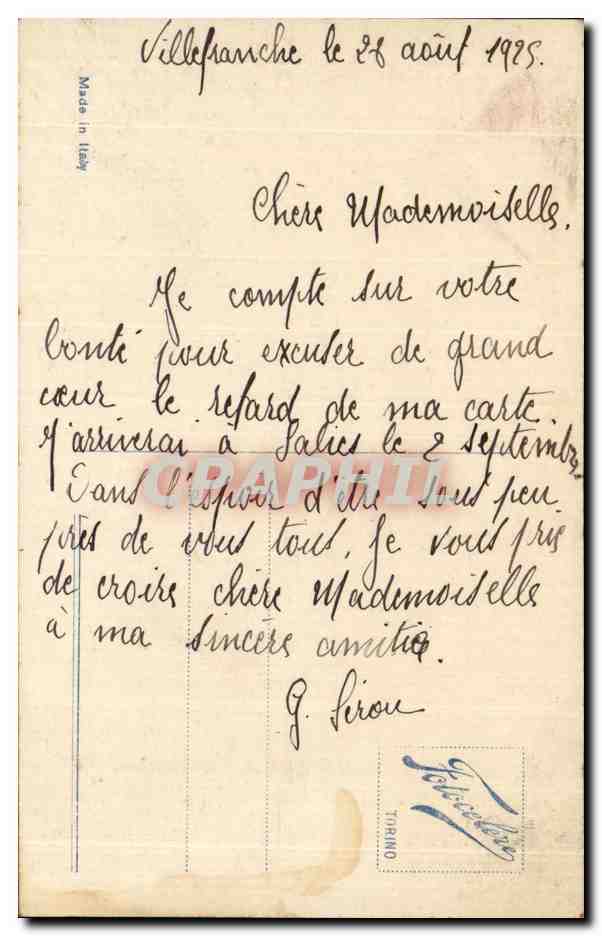 Villefranche le 28 août 1925.
Made in Italy
Chère Mademoiselle,
Je compte sur votre
bonté pour excuser de grand
cœur le retard de ma carte.
J'arriverai à Salies le 2 septembre.
Dans l'espoir d'être sous peu
près de vous tous, je vous prie
de croire chère Mademoiselle
à ma sincère amitié.
G. Sirou
CPAPHIL
Fotocelere
TORINO